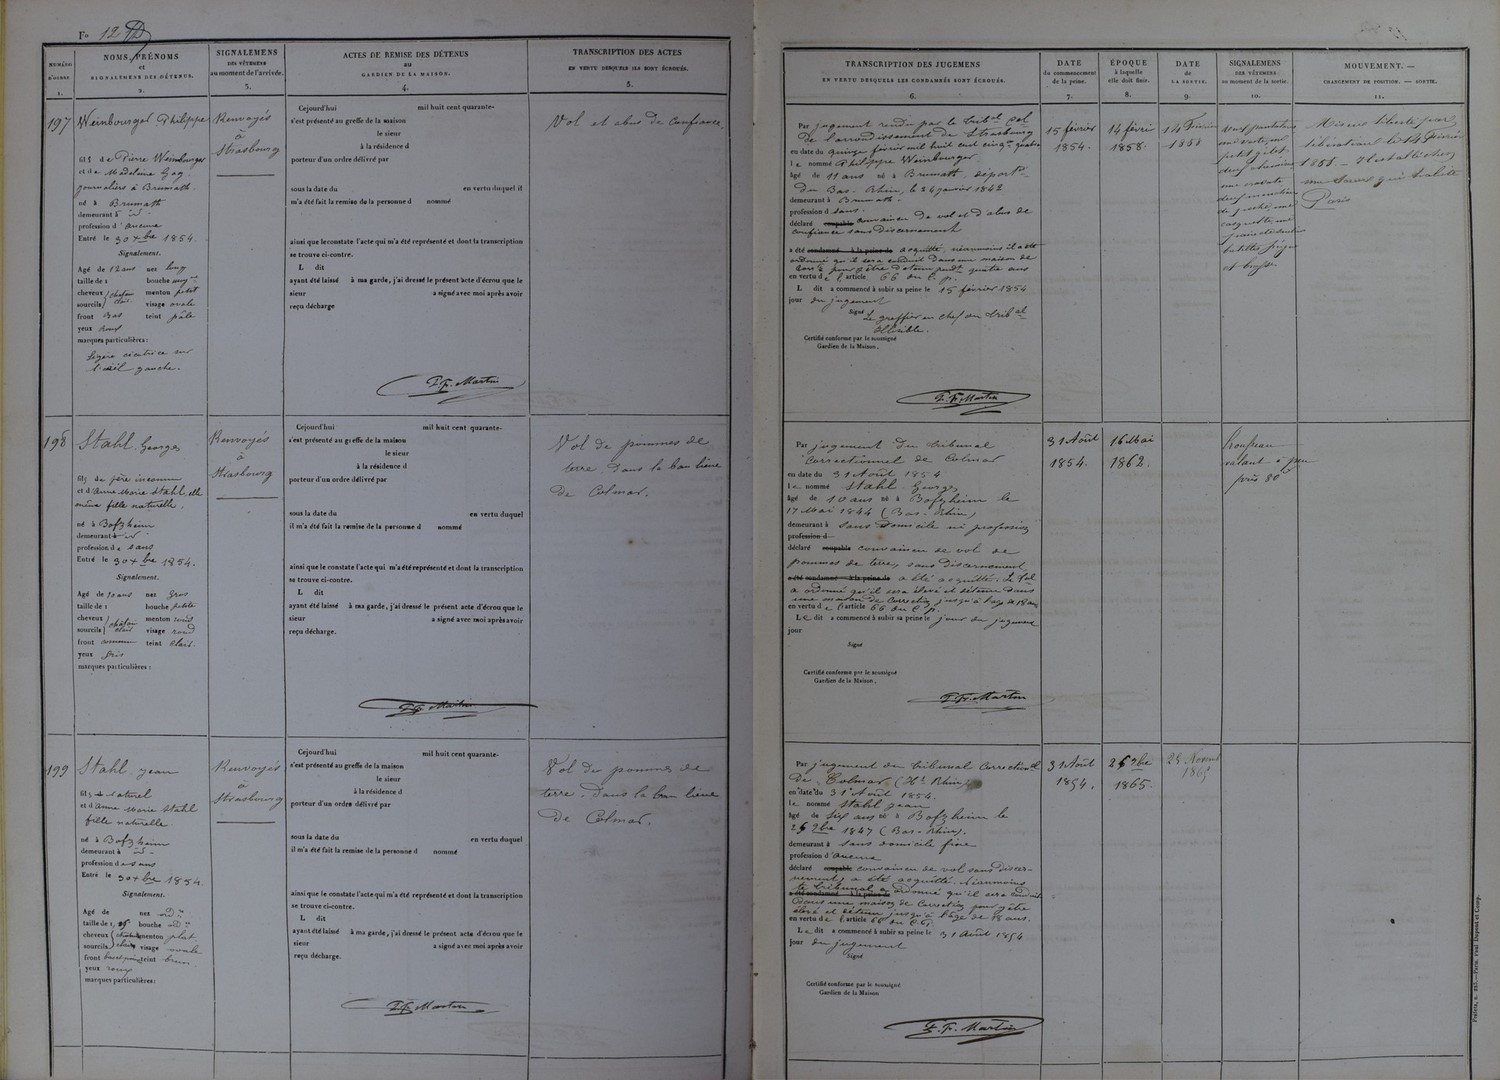 Fo 12
NUMÉRO D'ORDRE 1.
NOMS, PRÉNOMS et SIGNALEMENS DES DÉTENUS. 2.
SIGNALEMENS DES VÊTEMENS au moment de l'arrivée. 3.
ACTES DE REMISE DES DÉTENUS AU GARDIEN DE LA MAISON. 4.
TRANSCRIPTION DES ACTES EN VERTU DESQUELS ILS SONT ÉCROUÉS. 5.
TRANSCRIPTION DES JUGEMENS EN VERTU DESQUELS LES CONDAMNÉS SONT ÉCROUÉS. 6.
DATE du commencement de la peine. 7.
ÉPOQUE à laquelle elle doit finir. 8.
DATE de LA SORTIE. 9.
SIGNALEMENS DES VÊTEMENS au moment de la sortie. 10.
MOUVEMENT. — CHANGEMENT DE POSITION. — SORTIE. 11.
197
Weinbourger Philippe
fils de Pierre Weinbourger
et de Madeleine
journaliers à Brumath
né à Brumath
demeurant à id
profession d'aucune
Entré le 30 xbre 1854.
Signalement.
Agé de 12 ans nez long
taille de 1 bouche moy
cheveux châtain menton petit
sourcils clair visage ovale
front bas teint pâle
yeux roux
marques particulières :
Légère cicatrice sur
l'œil gauche.
Renvoyés
à
Strasbourg
Cejourd'hui mil huit cent quarante-
s'est présenté au greffe de la maison
le sieur
à la résidence d
porteur d'un ordre délivré par
sous la date du en vertu duquel il
m'a été fait la remise de la personne d nommé
ainsi que le constate l'acte qui m'a été représenté et dont la transcription
se trouve ci-contre.
L dit
ayant été laissé à ma garde, j'ai dressé le présent acte d'écrou que le
sieur a signé avec moi après avoir
reçu décharge
F. Fr. Martin
Vol et abus de confiance.
Par jugement rendu par le tribal Col
de l'arrondissement de Strasbourg
en date du quinze février mil huit cent cinqte quatre
le nommé Philippe Weinbourger
âgé de 11 ans né à Brumath, départt
du Bas-Rhin, le 24 janvier 1842
demeurant à Brumath.
profession d sans
déclaré coupable convaincu de vol et d'abus de
confiance sans discernement
a été condamné à la peine de acquitté, néanmoins il a été
ordonné qu'il sera conduit dans une maison de
corr. pour y être détenu pendt quatre ans
en vertu de l'article 66 du C. p.
L dit a commencé à subir sa peine le 15 février 1854
jour du jugement
Signé Le greffier en chef du tribal
Certifié conforme par le soussigné
Gardien de la Maison,
F. Fr. Martin
15 février
1854.
14 février
1858.
14 Février
1858
Mis en liberté par
libération le 14 février
1858.
Paris
198
Stahl Georges
fils de père inconnu
et d'Anne Marie Stahl, elle
même fille naturelle.
né à Bofzheim
demeurant à id
profession de sans
Entré le 30 xbre 1854.
Signalement.
Agé de 10 ans nez gros
taille de 1 bouche petite
cheveux châtain menton rond
sourcils clair visage rond
front teint clair.
yeux gris
marques particulières :
Renvoyés
à
Strasbourg
Cejourd'hui mil huit cent quarante-
s'est présenté au greffe de la maison
le sieur
à la résidence d
porteur d'un ordre délivré par
sous la date du en vertu duquel
il m'a été fait la remise de la personne d nommé
ainsi que le constate l'acte qui m'a été représenté et dont la transcription
se trouve ci-contre.
L dit
ayant été laissé à ma garde, j'ai dressé le présent acte d'écrou que le
sieur a signé avec moi après avoir
reçu décharge.
F. Fr. Martin
Vol de pommes de
terre, dans la banlieue
de Colmar.
Par jugement du tribunal
Correctionnel de Colmar
en date du 31 Août 1854
le nommé Stahl Georges
âgé de 10 ans né à Bofzheim le
17 Mai 1844 (Bas-Rhin)
demeurant à sans domicile ni profession
profession d
déclaré coupable convaincu de vol de
pommes de terre, sans discernement
a été condamné à la peine de a été acquitté. Le tal
a ordonné qu'il sera élevé et détenu dans
une maison de correction jusqu'à l'age de 18 ans
en vertu de l'article 66 du C. p.
Le dit a commencé à subir sa peine le jour du jugement
jour
Signé
Certifié conforme par le soussigné
Gardien de la Maison,
F. Fr. Martin
31 Août
1854.
16 Mai
1862.
199
Stahl Jean
fils naturel
et d'Anne Marie Stahl
fille naturelle
né à Bofzheim
demeurant à id
profession de sans
Entré le 30 xbre 1854.
Signalement.
Agé de nez ord re
taille de 1, 05 bouche id
cheveux châtain menton plat
sourcils clairs visage ovale
front teint brun
yeux roux
marques particulières :
Renvoyés
à
Strasbourg
Cejourd'hui mil huit cent quarante-
s'est présenté au greffe de la maison
le sieur
à la résidence d
porteur d'un ordre délivré par
sous la date du en vertu duquel
il m'a été fait la remise de la personne d nommé
ainsi que le constate l'acte qui m'a été représenté et dont la transcription
se trouve ci-contre.
L dit
ayant été laissé à ma garde, j'ai dressé le présent acte d'écrou que le
sieur a signé avec moi après avoir
reçu décharge.
F. Fr. Martin
Vol de pommes de
terre, dans la banlieue
de Colmar.
Par jugement du tribunal Correctionel
de Colmar (Ht Rhin)
en date du 31 Août 1854.
le nommé Stahl Jean
âgé de six ans né à Bofzheim le
26 9bre 1847 (Bas-Rhin).
demeurant à sans domicile fixe
profession d'aucune
déclaré coupable convaincu de vol sans discer-
nement, a été acquitté. Néanmoins
a été condamné à la peine de le tribunal a ordonné qu'il sera conduit
dans une maison de correction pour y être
élevé et détenu jusqu'à l'âge de 18 ans.
en vertu de l'article 66 du C. P.
Le dit a commencé à subir sa peine le 31 Août 1854
jour du jugement
Signé
Certifié conforme par le soussigné
Gardien de la Maison
F. Fr. Martin
31 Août
1854.
26 9bre
1865.
25 Novemb
1865